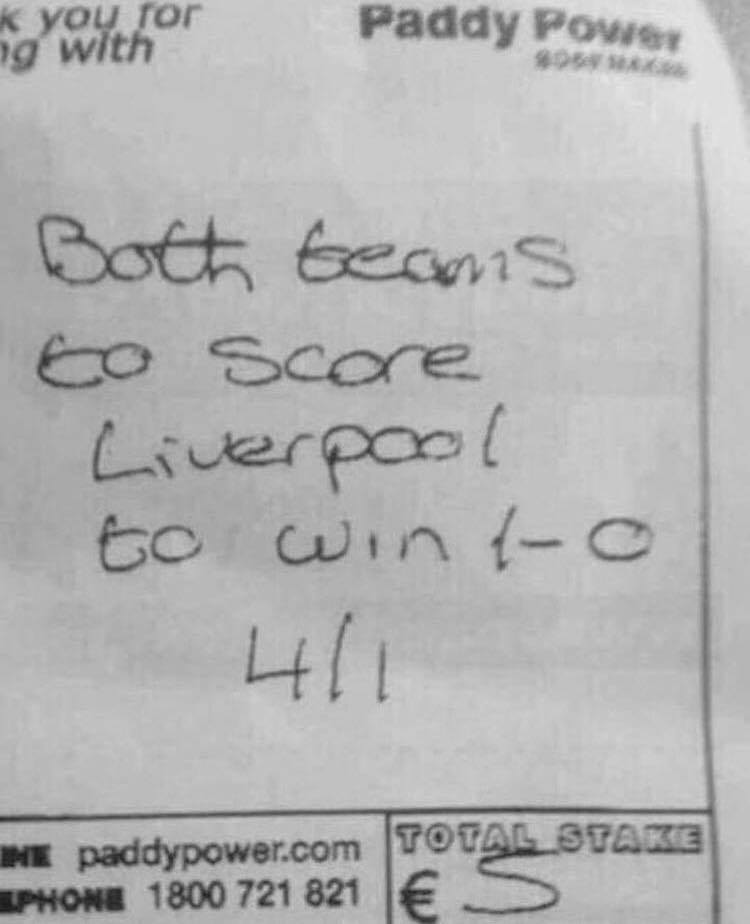 k you for
ng with
Paddy Power
BOOKMAKER
Both teams
to score
Liverpool
to win 1-0
4/1
paddypower.com
1800 721 821
TOTAL STAKE
€ 5